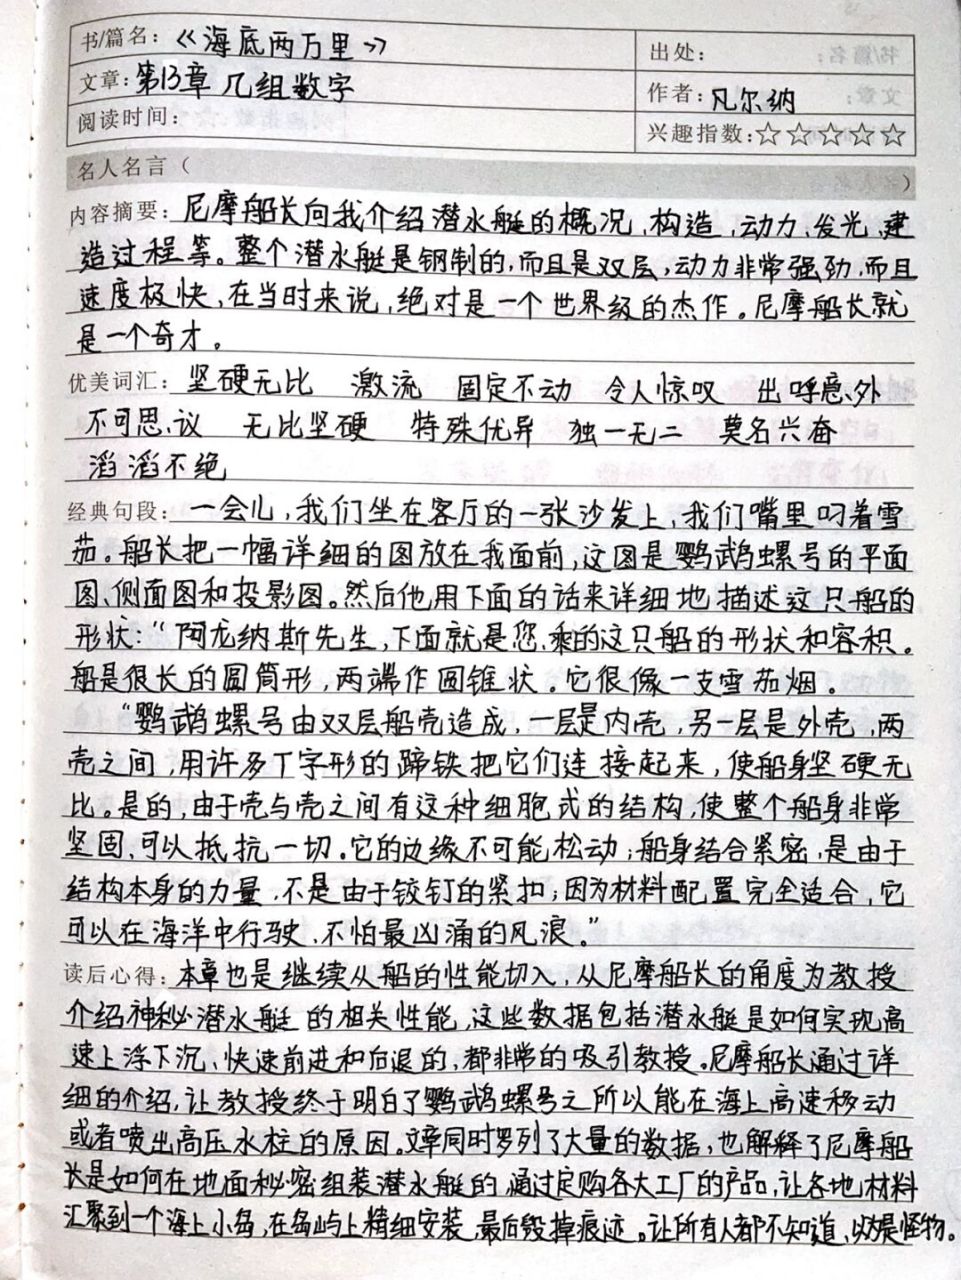 书/篇名：《海底两万里》 出处：
文章：第13章 几组数字 作者：凡尔纳
阅读时间： 兴趣指数：☆☆☆☆☆
名人名言（ ）
内容摘要：尼摩船长向我介绍潜水艇的概况、构造、动力、发光、建
造过程等。整个潜水艇是钢制的，而且是双层，动力非常强劲，而且
速度极快，在当时来说，绝对是一个世界级的杰作。尼摩船长就
是一个奇才。
优美词汇：坚硬无比 激流 固定不动 令人惊叹 出呼意外
不可思议 无比坚硬 特殊优异 独一无二 莫名兴奋
滔滔不绝
经典句段：一会儿，我们坐在客厅的一张沙发上，我们嘴里叼着雪
茄。船长把一幅详细的图放在我面前，这图是鹦鹉螺号的平面
图、侧面图和投影图。然后他用下面的话来详细地描述这只船的
形状：“阿龙纳斯先生，下面就是您乘的这只船的形状和容积。
船是很长的圆筒形，两端作圆锥状。它很像一支雪茄烟。
“鹦鹉螺号由双层船壳造成，一层是内壳，另一层是外壳，两
壳之间，用许多丁字形的蹄铁把它们连接起来，使船身坚硬无
比。是的，由于壳与壳之间有这种细胞式的结构，使整个船身非常
坚固、可以抵抗一切。它的边缘不可能松动；船身结合紧密，是由于
结构本身的力量，不是由于铰钉的紧扣；因为材料配置完全适合，它
可以在海洋中行驶、不怕最凶涌的风浪。”
读后心得：本章也是继续从船的性能切入，从尼摩船长的角度为教授
介绍神秘潜水艇的相关性能，这些数据包括潜水艇是如何实现高
速上浮下沉、快速前进和后退的，都非常的吸引教授。尼摩船长通过详
细的介绍，让教授终于明白了鹦鹉螺号之所以能在海上高速移动
或者喷出高压水柱的原因。文章同时罗列了大量的数据，也解释了尼摩船
长是如何在地面秘密组装潜水艇的，通过定购各大工厂的产品，让各地材料
汇聚到一个海上小岛，在岛屿上精细安装，最后毁掉痕迹。让所有人都不知道、以为是怪物。